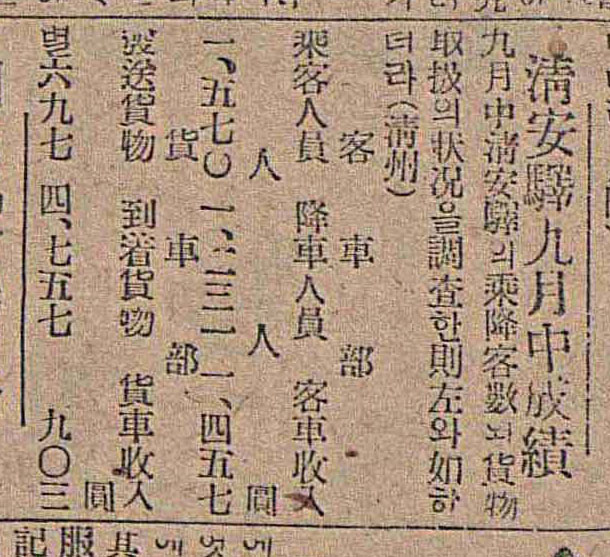 淸安驛九月中成績
九月中淸安驛의乘降客數와貨物
取扱의狀況을調査한則左와如하
더라(淸州)
客車部
乘客人員 降車人員 客車收入
人 人 圓
一、五七〇 一、二三一 一、四五七
貨車部
發送貨物 到着貨物 貨車收入
圓
六九七 四、七五七 九〇三